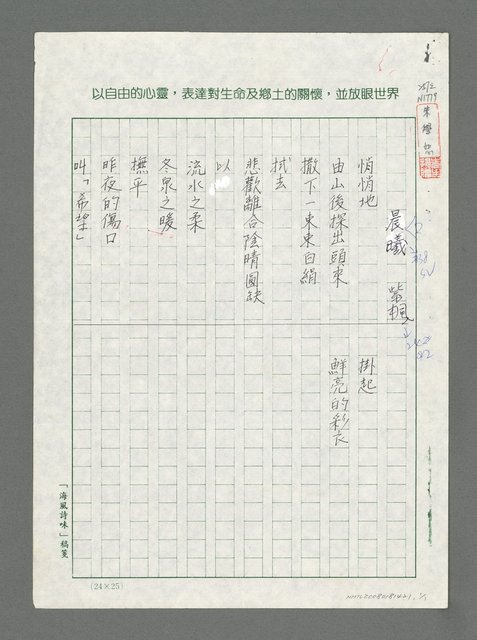 以自由的心靈，表達對生命及鄉土的關懷，並放眼世界
晨曦　紫楓
悄悄地
由山後探出頭來
撒下一束束白絹
拭去
悲歡離合陰晴圓缺
以
流水之柔
冬泉之暖
撫平
昨夜的傷口
叫「希望」
掛起
鮮亮的彩衣
「海風詩味」稿箋
(24×25)